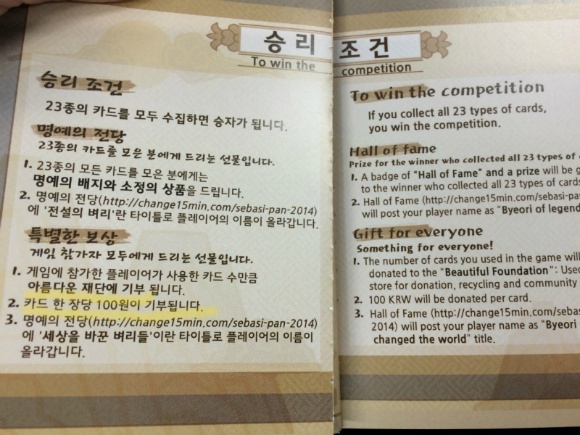 승리 조건
To win the competition
승리 조건
23종의 카드를 모두 수집하면 승자가 됩니다.
명예의 전당
23종의 카드를 모은 분에게 드리는 선물입니다.
1. 23종의 모든 카드를 모은 분에게는
명예의 배지와 소정의 상품을 드립니다.
2. 명예의 전당(http://change15min.com/sebasi-pan-2014)
에 '전설의 벼리'란 타이틀로 플레이어의 이름이 올라갑니다.
특별한 보상
게임 참가자 모두에게 드리는 선물입니다.
1. 게임에 참가한 플레이어가 사용한 카드 수만큼
아름다운 재단에 기부 됩니다.
2. 카드 한 장당 100원이 기부됩니다.
3. 명예의 전당(http://change15min.com/sebasi-pan-2014)
에 '세상을 바꾼 벼리들'이란 타이틀로 플레이어의 이름이
올라갑니다.
To win the competition
If you collect all 23 types of cards,
you win the competition.
Hall of fame
Prize for the winner who collected all 23 types of
1. A badge of "Hall of Fame" and a prize will be
to the winner who collected all 23 types of cards
2. Hall of Fame (http://change15min.com/sebasi-
will post your player name as "Byeori of legend
Gift for everyone
Something for everyone!
1. The number of cards you used in the game will
donated to the "Beautiful Foundation": Used
store for donation, recycling and community
2. 100 KRW will be donated per card.
3. Hall of Fame (http://change15min.com/sebas
2014) will post your player name as "Byeori
changed the world" title.